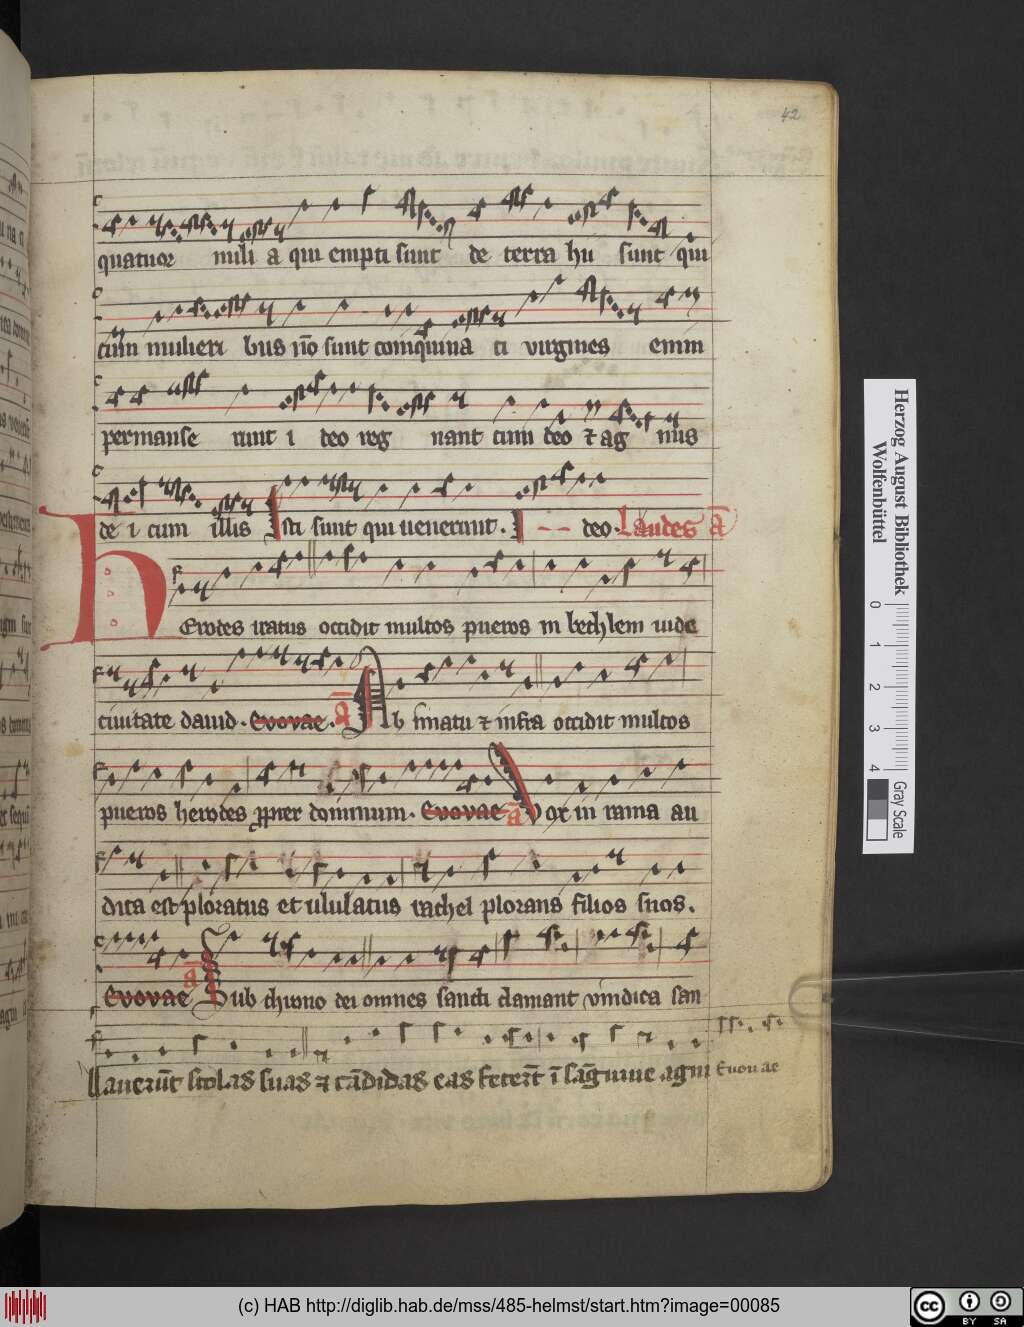 42
quatuor mili a qui empti sunt de terra hii sunt qui
cum mulieri bus nō sunt coinquina ti virgines enim
permanse runt i deo reg nant cum deo ⁊ ag nus
de i cum illis Isti sunt qui uenerunt. I -- deo. Laudes ā
Herodes iratus occidit multos pueros in bethlem iude
ciuitate dauid. Evovae. ā Ab imatu ⁊ infra occidit multos
pueros herodes ꝓpter dominum. Evovae ā Vox in rama au
dita est ploratus et ululatus rachel plorans filios suos.
Evovae ā Sub throno dei omnes sancti clamant vindica san
Lauerūt stolas suas ⁊ cādidas eas fecerūt ī sāguine agni Euouae
Herzog August Bibliothek
Wolfenbüttel
0 1 2 3 4
Gray Scale
(c) HAB http://diglib.hab.de/mss/485-helmst/start.htm?image=00085
cc BY SA